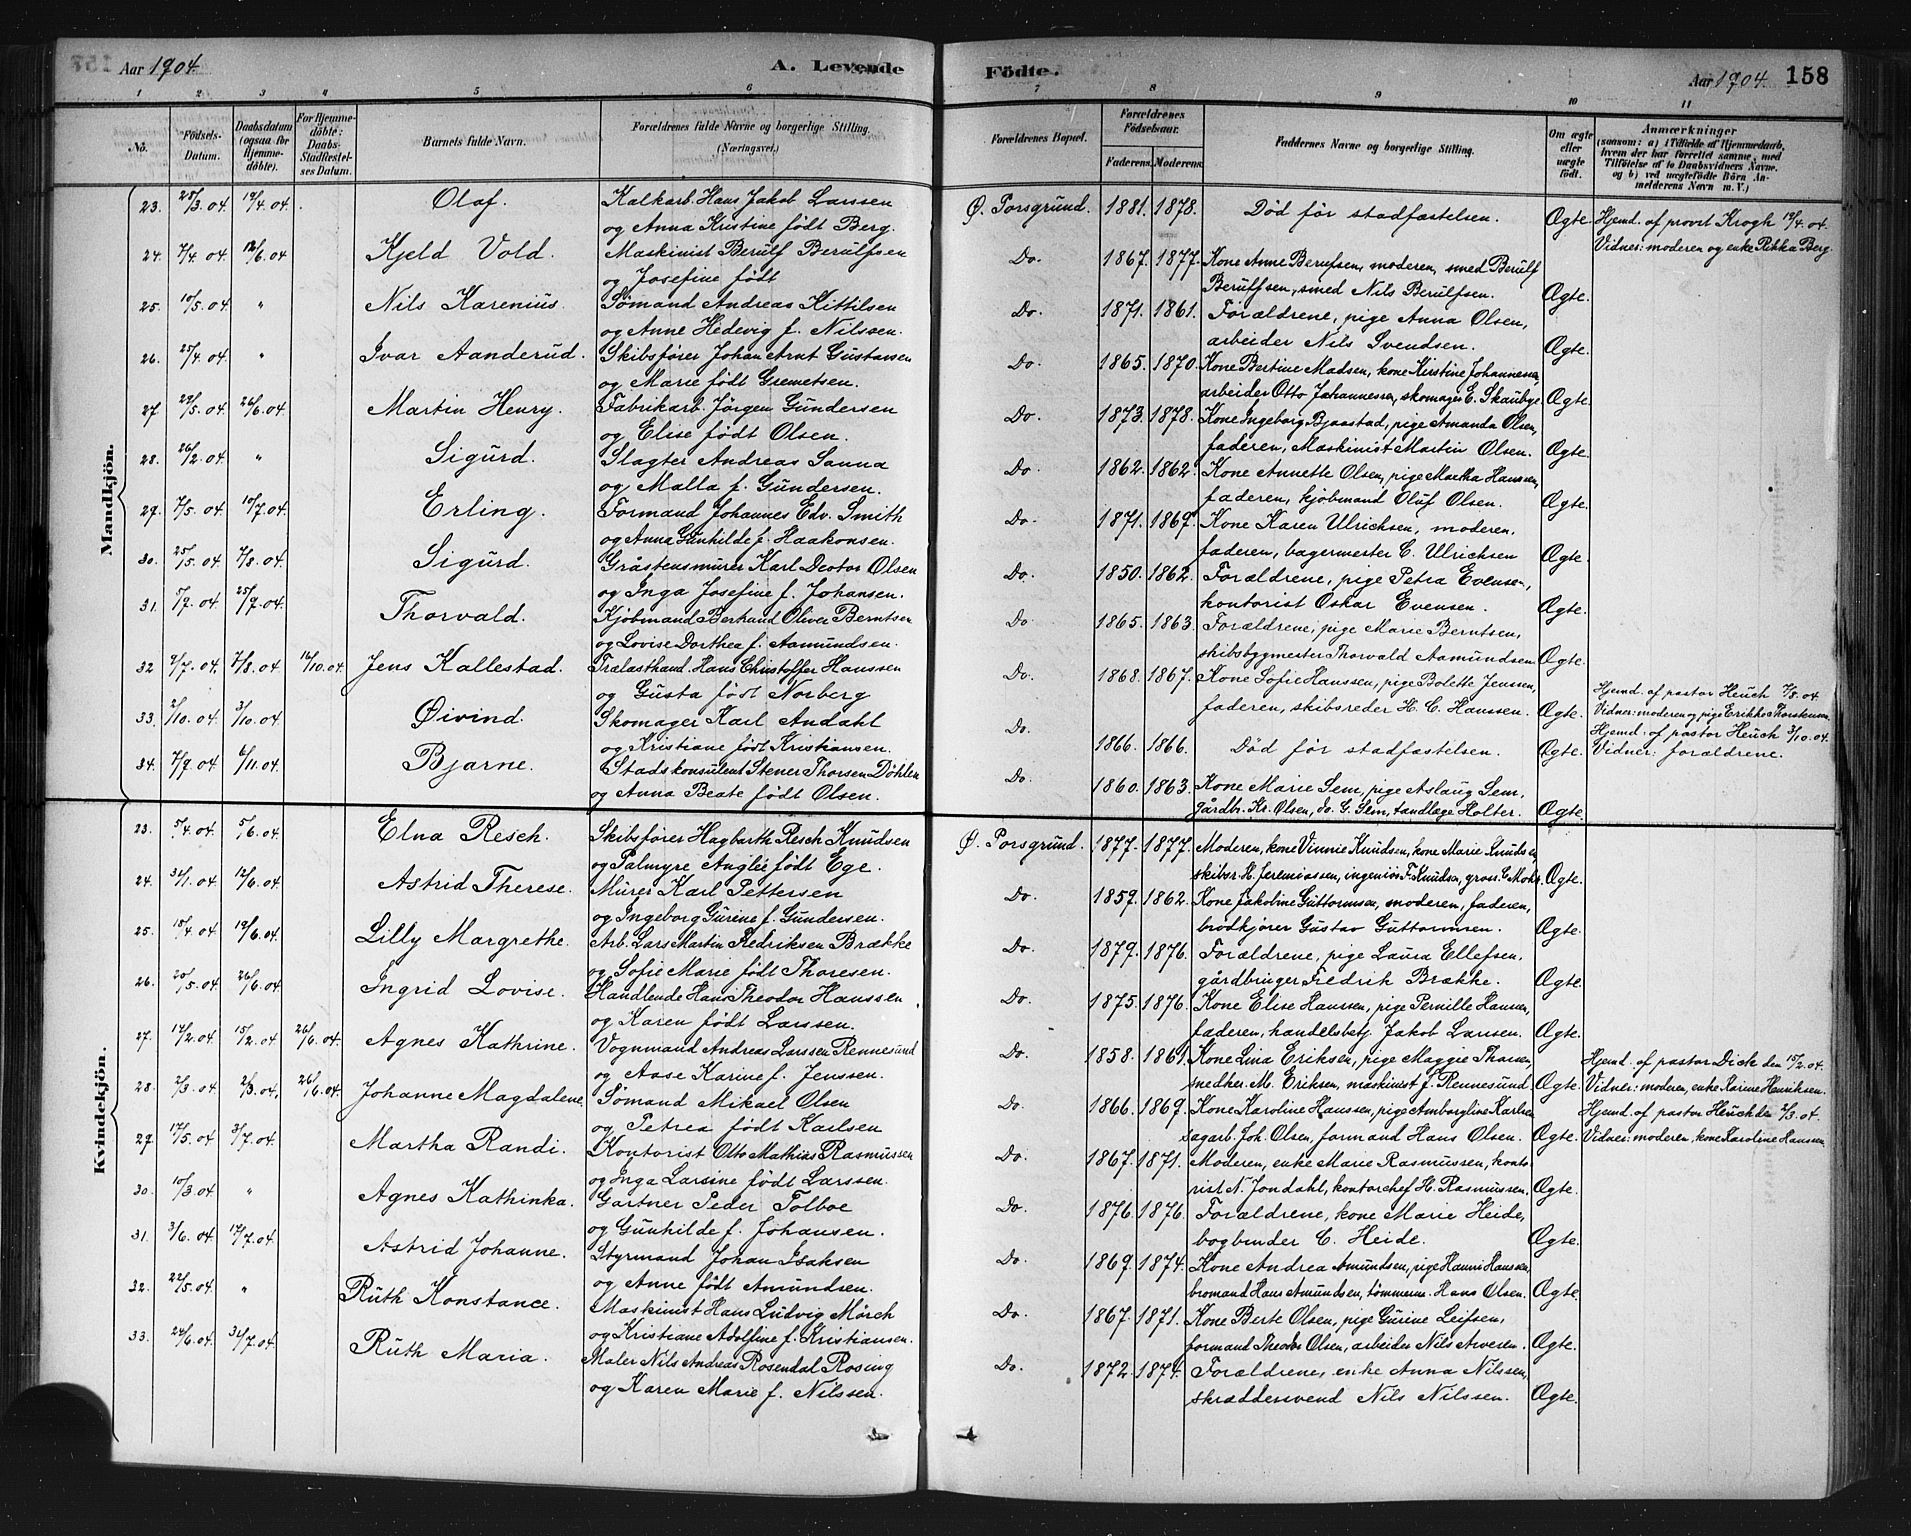 Aar 1904. A. Levende Födte. Aar 1904. 158
1 2 3 4 5 6 7 8 9 10 11
No. Födsels-Datum. Daabsdatum (ogsaa for Hjemme-döbte). For Hjemme-döbte: Daabs-Stadfæstel-ses Datum. Barnets fulde Navn. Forældrenes fulde Navne og borgerlige Stilling. (Næringsvei.) Forældrenes Bopæl. Forældrenes Födselsaar. Faderens. Moderens. Faddernes Navne og borgerlige Stilling. Om ægte eller uægte födt. Anmærkninger (saasom: a) i Tilfælde af Hjemmedaab, hvem der har forrettet samme, med Tilföielse af to Daabsvidners Navne. og b) ved uægtefödte Börn An-melderens Navn m. V.)
Mandkjön.
23. 25/3.04. 19/4.04. Olaf. Kalkarb. Hans Jakob Larssen Ø. Porsgrund. 1881. 1878. Død før stadfæstelsen. Ægte. Hjemd. af provst Krogh 19/4.04.
og Anna Kristine født Berg. Vidner: moderen og enke Rikka Berg.
24. 7/4.04 12/6.04 Kjeld Vold. Maskinist Berulf Berulfsen Do. 1867. 1877. Kone Anne Berufsen, moderen, smed Berulf
og Josefine født Berulfsen, smed Nils Berulfsen. Ægte.
25. 10/5.04. " Nils Karenius. Sømand Andreas Kittilsen Do. 1871. 1861. Forældrene, pige Anna Olsen,
og Anne Hedevig f. Nilssen. arbeider Nils Svendsen. Ægte.
26. 25/4.04. " Ivar Aanderud. Skibsfører Johan Arnt Gustansen Do. 1865. 1870. Kone Bertine Madsen, kone Kirstine Johannessen,
og Marie født Gremetsen. arbeider Otto Johannessen, skomager E. Skaubye. Ægte.
27. 29/5.04. 26/6.04. Martin Henry. Fabrikarb. Jørgen Gundersen Do. 1873. 1878. Kone Ingeborg Bjaastad, pige Amanda Olsen,
og Elise født Olsen. faderen, Maskinist Martin Olsen. Ægte.
28. 26/2.04. " Sigurd. Slagter Andreas Sanna Do. 1862. 1862. Kone Annette Olsen, pige Martha Hanssen,
og Malla f. Gundersen. faderen, kjøbmand Oluf Olsen. Ægte.
29. 7/5.04. 10/7.04. Erling. Formand Johannes Edv. Smith Do. 1871. 1869. Kone Karen Ulrichsen, moderen,
og Anna Gunhilde f. Haakonsen. faderen, bagermester C. Ulrichsen Ægte.
30. 25/5.04. 7/8.04. Sigurd. Gråstensmurer Karl Deotor Olsen Do. 1850. 1862. Forældrene, pige Petra Evensen,
og Inga Josefine f. Johansen. kontorist Oskar Evensen. Ægte.
31. 5/7.04. 25/9.04. Thorvald. Kjøbmand Bertrand Oliver Berntsen Do. 1865. 1863. Forældrene, pige Marie Berntsen,
og Lovise Dorthea f. Aamundsen. skibsbygmester Thorvald Aamundsen. Ægte.
32 9/7.04. 7/8.04. 16/10.04. Jens Kallestad. Trælasthand. Hans Christoffer Hanssen Do. 1868. 1867. Kone Sofie Hanssen, pige Bolette Jenssen, Hjemd. af pastor Heuch 7/8.04.
og Gusta født Norberg faderen, skibsreder H. C. Hanssen. Ægte. Vidner: moderen og pige Erikka Thorstensen.
33. 2/10.04. 3/10.04. Øivind. Skomager Karl Andahl Do. 1866. 1866. Død før stadfæstelsen. Ægte. Hjemd. af pastor Heuch 3/10.04.
og Kristiane født Kristiansen. Vidner: forældrene.
34. 7/9.04 6/11.04. Bjarne. Stadskonsulent Stener Thorsen Döhlen Do. 1860. 1863. Kone Marie Sem, pige Aslaug Sem,
og Anna Beate født Olsen. gårdbr. Kr. Olsen, do. G. Sem, tandlæge Holter. Ægte.
Kvindekjön.
23. 5/4.04. 5/6.04. Elna Resch. Skibsfører Hagbarth Resch Knudsen Ø. Porsgrund. 1877. 1877. Moderen, kone Vinnie Knudsen, kone Marie Knudsen,
og Palmyre Anglée født Ege. skibsr. H. Jeremiassen, ingeniør F. Knudsen, gross. C. Mohr. Ægte.
24. 31/1.04. 12/6.04. Astrid Therese. Murer Karl Pettersen Do. 1859. 1862. Kone Jakobine Guttormsen, moderen, faderen,
og Ingeborg Gurine f. Gundersen. brödkjører Gustav Guttormsen. Ægte.
25. 18/4.04 19/6.04. Lilly Margrethe. Arb. Lars Martin Fredriksen Brække Do. 1879. 1876. Forældrene, pige Laura Ellefsen,
og Sofie Marie født Thoresen. gårdbruger Fredrik Brække. Ægte.
26. 20/5.04. 26/6.04. Ingrid Lovise. Handlende Hans Theodor Hanssen Do. 1875. 1876. Kone Elise Hanssen, pige Pernille Hansen,
og Karen født Larssen. faderen, handelsbetj. Jakob Larsen. Ægte.
27. 14/2.04 15/2.04 26/6.04. Agnes Kathrine. Vognmand Andreas Larssen Rennesund Do. 1858. 1861. Kone Lina Eriksen, pige Maggie Thorsen, Hjemd. af pastor Dick den 15/2.04.
og Aase Karine f. Jenssen. snedker M. Eriksen, maskinist J. Rennesund Ægte. Vidner: moderen, enke Karine Henriksen.
28. 2/3.04. 2/3.04. 26/6.04. Johanne Magdalene. Sömand Mikael Olsen Do. 1866. 1869. Kone Karoline Hanssen, pige Amborgline Karlsen, Hjemd. af pastor Heuch den 2/3.04.
og Petrea født Karlsen sagarb. Joh. Olsen, formand Hans Olsen. Ægte. Vidner: moderen, kone Karoline Hanssen.
29. 17/5.04. 3/7.04. Martha Randi. Kontorist Otto Mathias Rasmussen Do. 1867. 1871. Moderen, enke Marie Rasmussen, konto-
og Inga Larsine født Larssen. rist N. Jondahl, kontorchef H. Rasmussen. Ægte.
30. 10/3.04 " Agnes Kathinka. Gartner Peder Tolboe Do. 1876. 1876. Forældrene, kone Marie Heide,
og Gunhilde f. Johansen. bogbinder C. Heide. Ægte.
31. 3/6.04. 17/7.04. Astrid Johanne. Styrmand Johan Isaksen Do. 1869. 1874. Kone Andrea Amundsen, pige Hanni Hanssen,
og Anne født Amundsen. bromand Hans Amundsen, tømmerm. Hans Olsen. Ægte.
32. 22/5.04. " Ruth Konstance. Maskinist Hans Ludvig Mörch Do. 1867. 1871. Kone Berte Olsen, pige Gurine Leifsen,
og Kristiane Adolfine f. Kristiansen. formand Theodor Olsen, arbeider Nils Arvesen. Ægte.
33. 24/6.04. 31/7.04. Ruth Maria. Maler Nils Andreas Rosendal Rosing Do. 1872. 1874. Forældrene, enke Anna Nilssen,
og Karen Marie f. Nilssen. skræddersvend Nils Nilssen. Ægte.